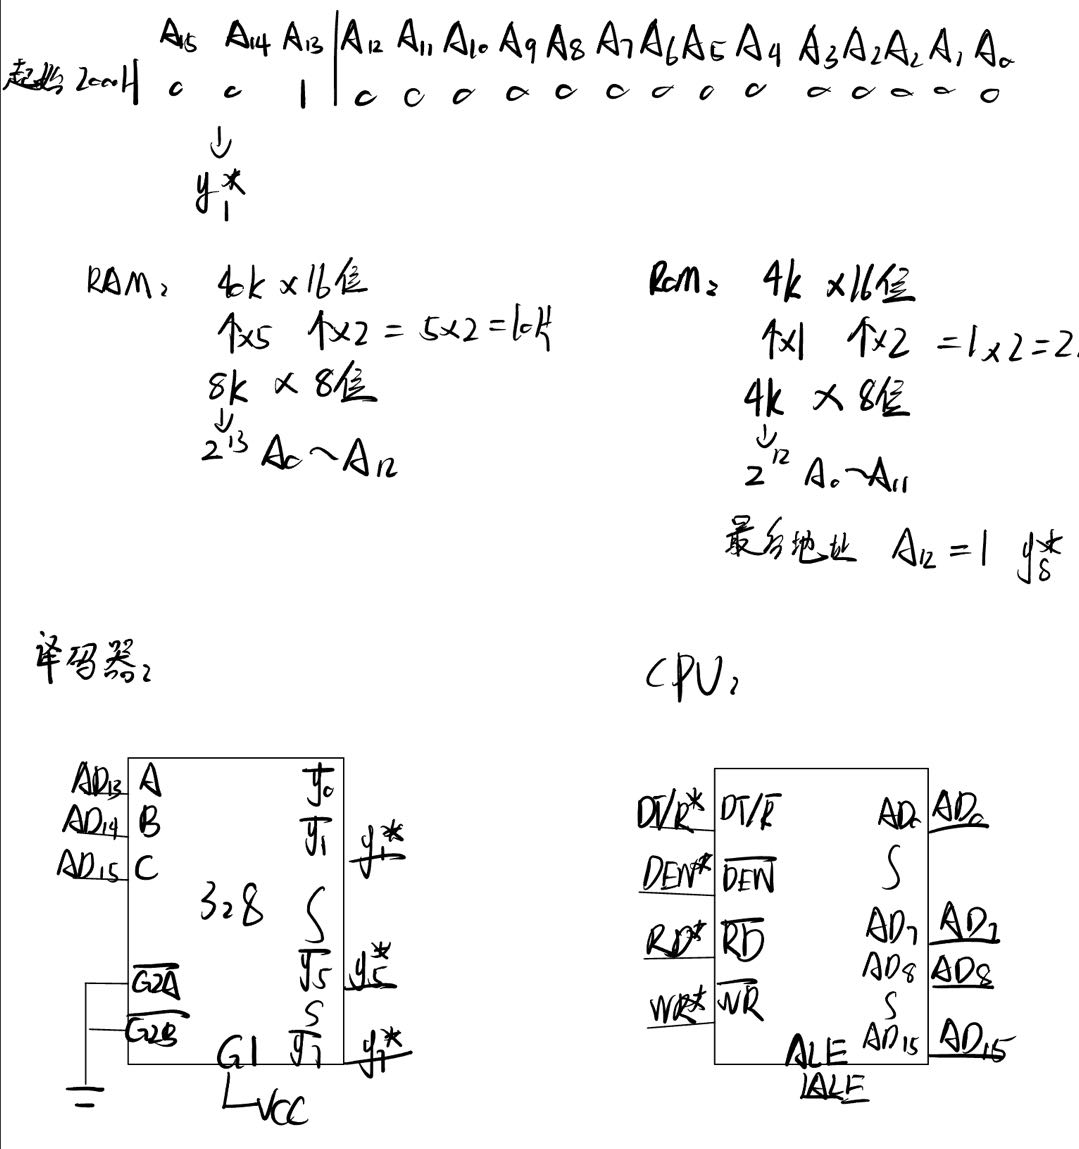 A15 A14 A13 A12 A11 A10 A9 A8 A7 A6 A5 A4 A3 A2 A2 A1 A0
起始 2000H 0 0 1 0 0 0 0 0 0 0 0 0 0 0 0 0 0
↓
y1*
RAM: 40k ×16位
↑×5 ↑×2 = 5×2=10片
8k × 8位
↓
2^13 A0~A12
Rom: 4k ×16位
↑×1 ↑×2 =1×2=2
4k × 8位
↓
2^12 A0~A11
最后地址 A12=1 y8*
译码器:
AD13 A
AD14 B
AD15 C
328
G2A
G2B
G1
VCC
y0
y1 y1*
y5 y5*
y7 y7*
CPU:
DT/R* DT/R
DEN* DEN
RD* RD
WR* WR
AD0 AD0
AD7 AD7
AD8 AD8
AD15 AD15
ALE
ALE